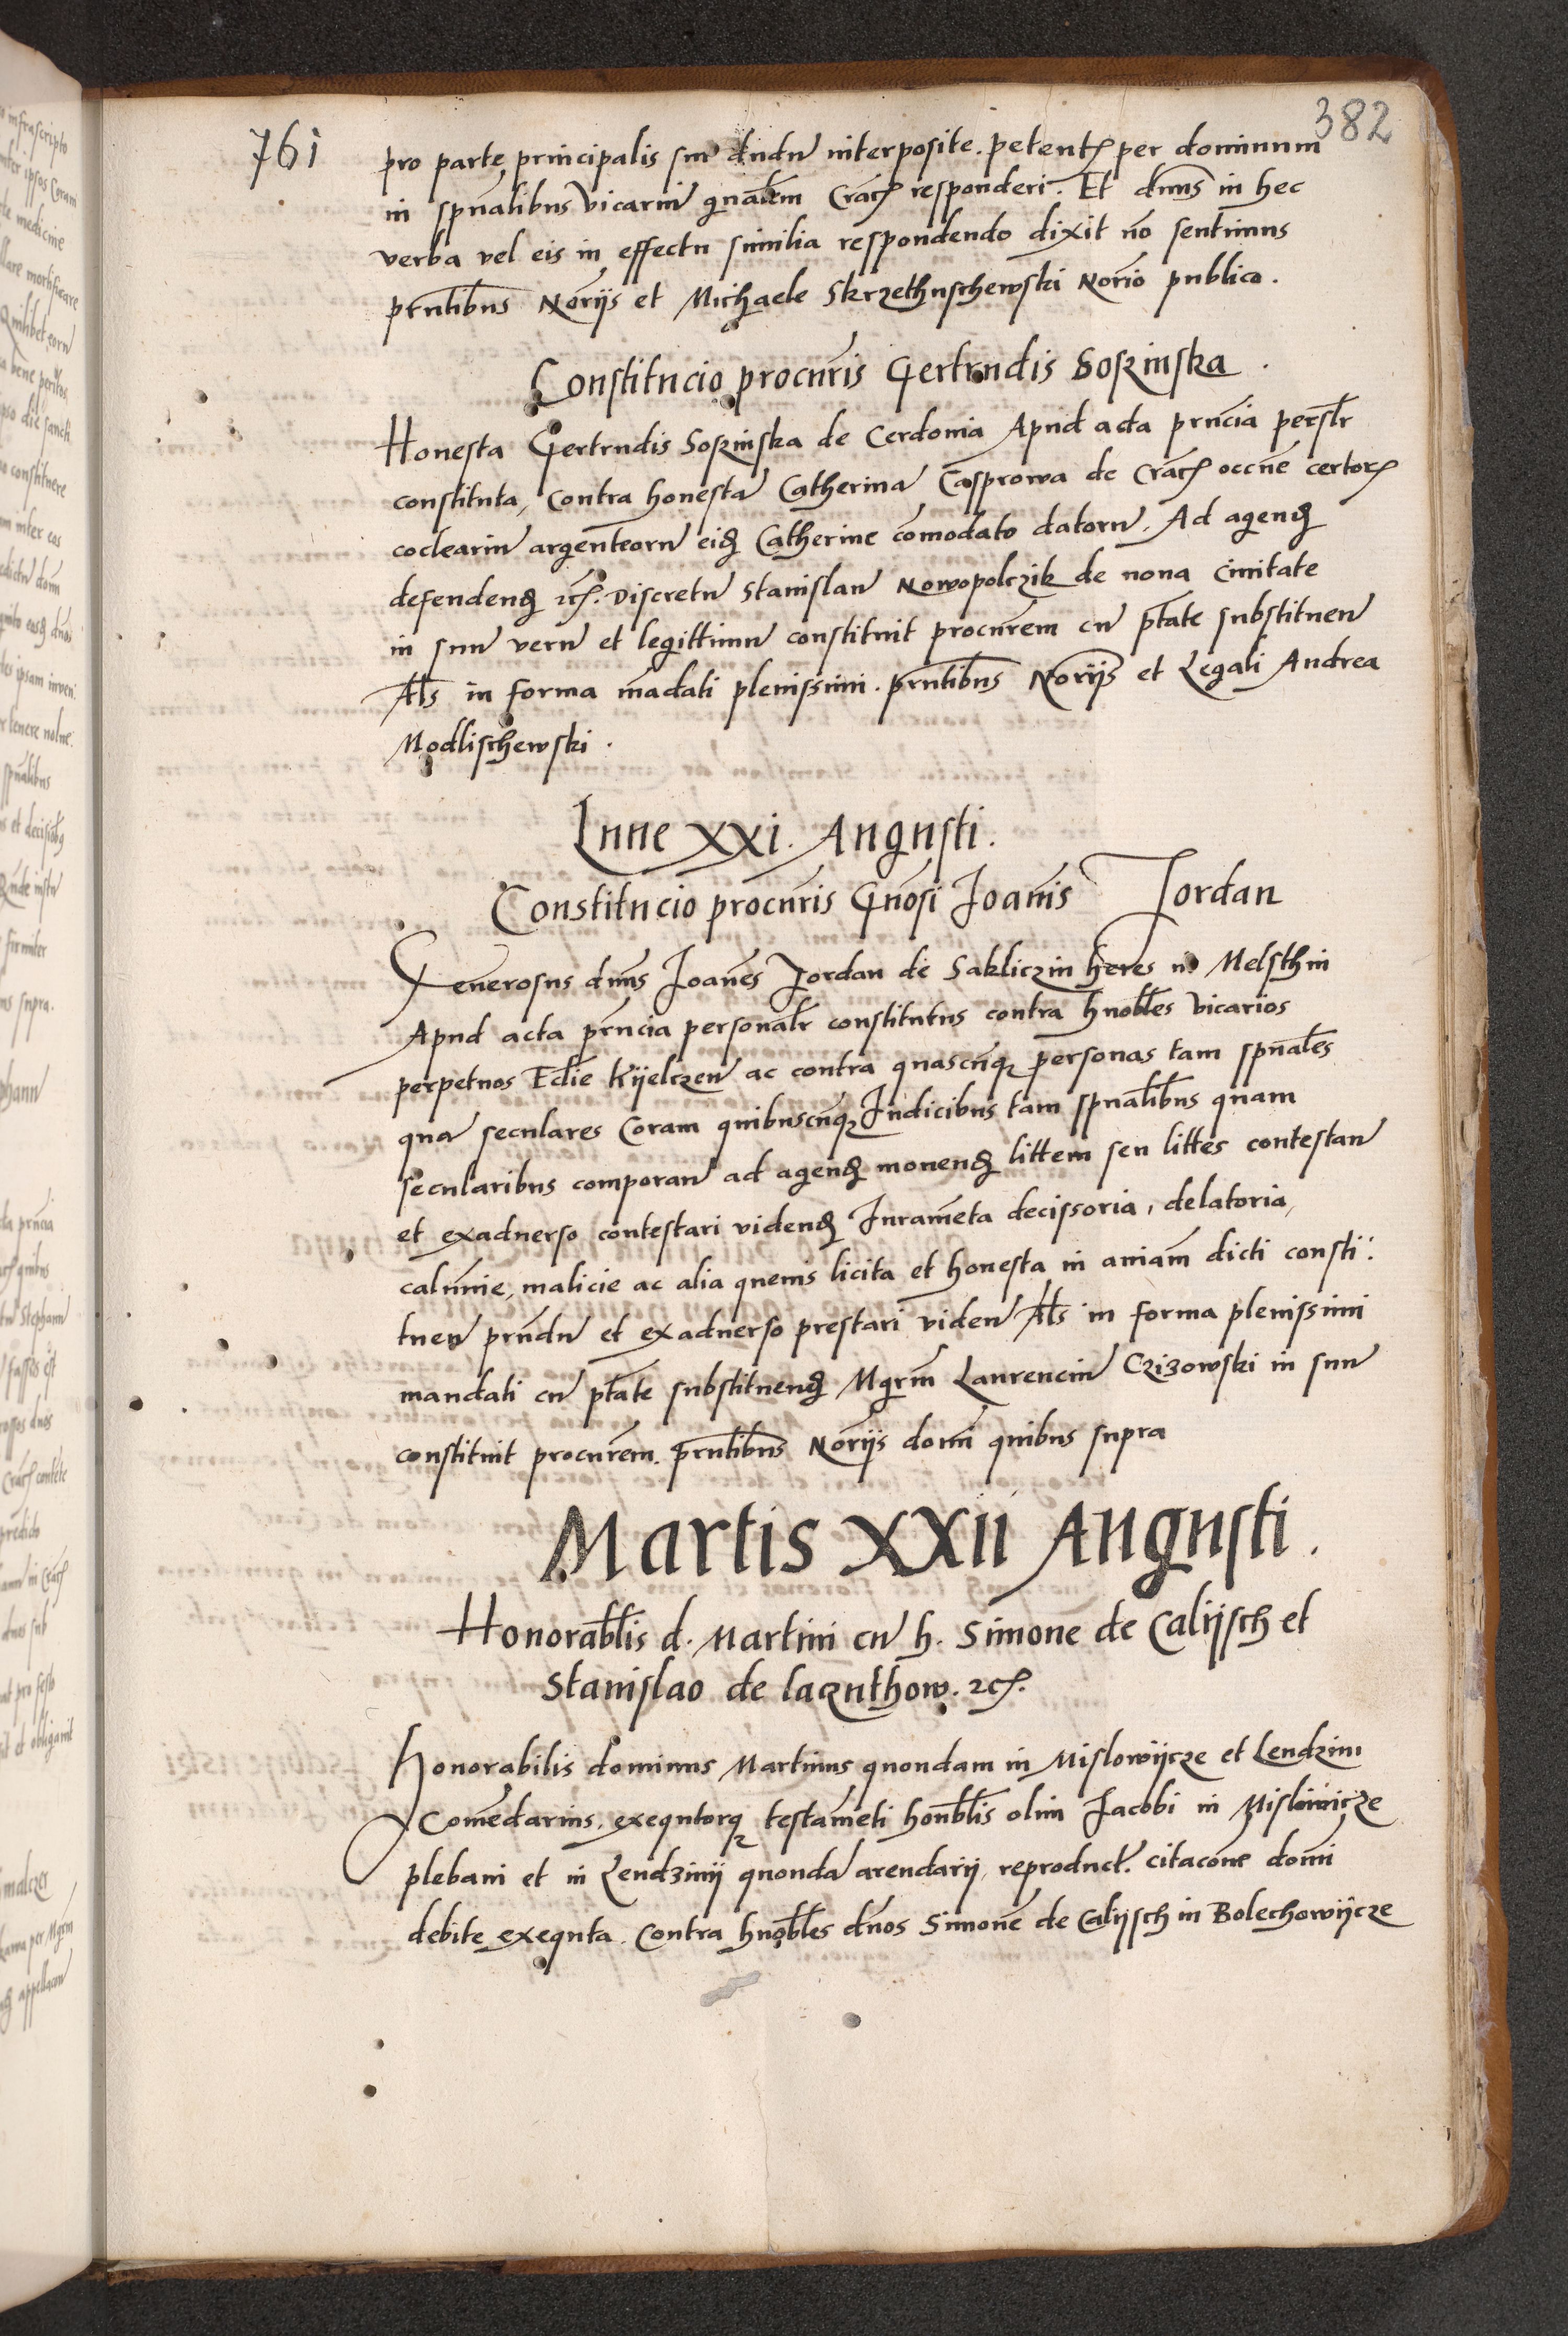 382
761
pro parte principalis sui dudu̅ interposite. petent̄ per dominum
in sp̅ualibus Vicariu̅ gn̅alem Crac̄ responderi. Et dn̅us in hec
verba vel eis in effectu similia respondendo dixit no̅ sentimus
pn̅tibus No̅rijs et Michaele Skrzethuschewski No̅rio publico.
Constitucio procur̅is Gertrudis Soszinska.
Honesta Gertrudis Soszinska de Cerdonia Apud acta pn̅cia perslr̅
constituta, Contra honesta̅ Catherina̅ Casprowa de Crac̄ occ̅ne certor̄
cocleariu̅ argenteoru̅ eid̄ Catherine co̅modato datoru̅. Ad agend̄
defendend̄ ⁊c̄. Discretu̅ Stanislau̅ Nowopolczik de noua Ciuitate
in suu̅ veru̅ et legittimu̅ constituit procur̅em cu̅ pt̅ate substituen̄
Als̅ in forma ma̅dati plenissimi. pn̅tibus No̅rijs et Legali Andrea
Modlischewski.
Lune XXI. Augusti.
Constitucio procur̅is Gn̅osi Joan̅is Jordan
Generosus dn̅us Joan̅es Jordan de Sakliczin heres in Melsthin
Apud acta pn̅cia personalr̅ constitutus contra hnobl̅es Vicarios
perpetuos Ecl̅ie Kijelczen̄ ac contra quascu̅qꝫ personas tam sp̅uales
qua̅ seculares Coram quibuscu̅qꝫ Iudicibus tam sp̅ualibus quam
secularibus comporan̄ ad agend̄ mouend̄ littem seu littes contestan̄
et exaduerso contestari videnđ Iurame̅ta decissoria, delatoria,
calu̅nie, malicie ac alia queuis licita et honesta in ani̅am dicti consti:
tuen̄ pn̅du̅ et exaduerso prestari viden̄ Als̅ in forma plenissimi
mandati cu̅ pt̅ate substituend̄ Mgrm̅ Laurenciu̅ Czizowski in suu̅
constituit procur̅em. pn̅tibus No̅rijs domi̅ quibus supra
Martis XXII Augusti.
Honorabl̅is d. Martini cu̅ h. Simone de Calijsch et
Stanislao de lasznthow. ⁊c̄.
Honorabilis dominus Martinus quondam in Mislowijcze et Lendzini
Come̅darius, exequutorqꝫ testame̅ti honobl̅is olim Jacobi in Mislowicze
plebani et in Lendzinij quonda̅ arendarij, reproduct̄. citaco̅ne domi̅
debite exequta. Contra hnobl̅es dn̅os Simone̅ de Calijsch in Bolechowijcze